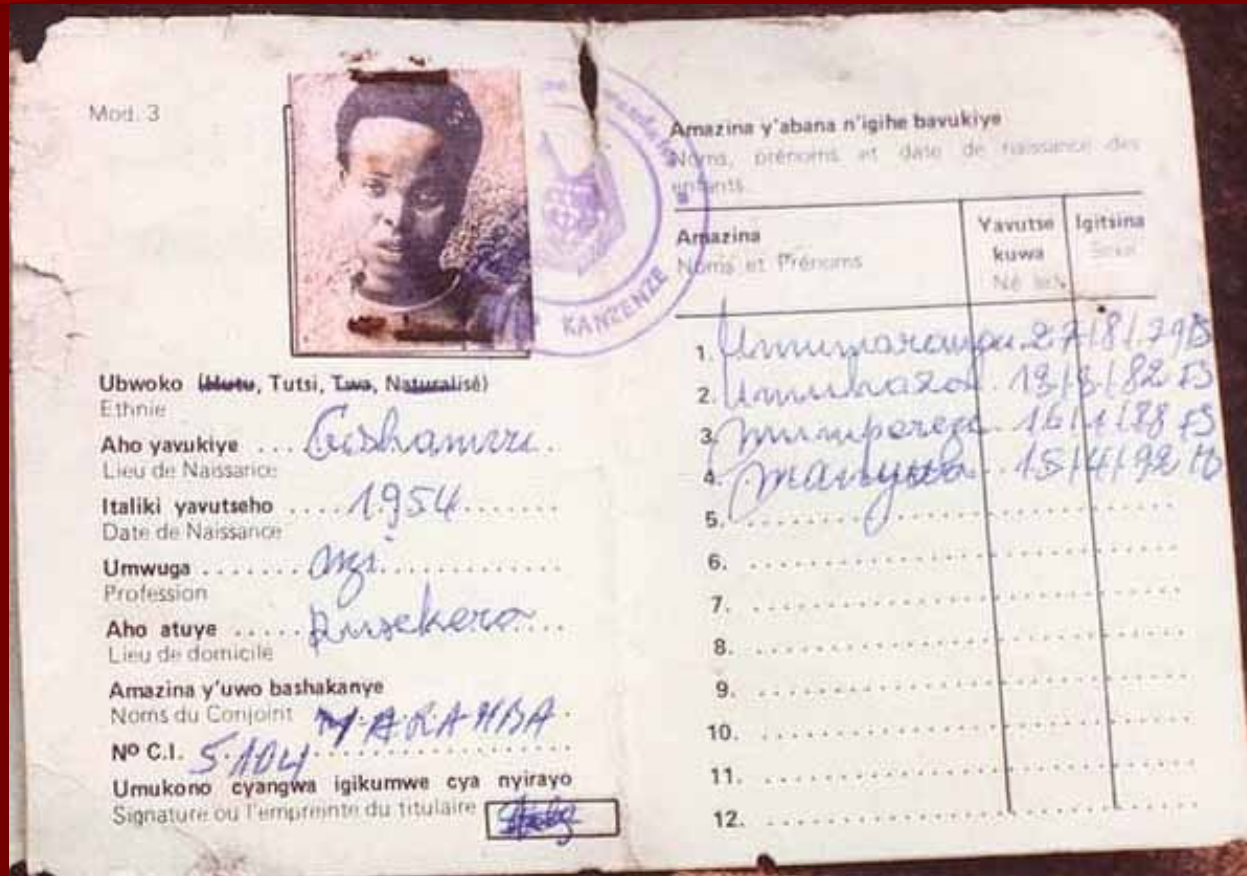 Mod. 3
KANZENZE
Ubwoko (Hutu, Tutsi, Twa, Naturalisé)
Ethnie
Aho yavukiye .... Gashamvu
Lieu de Naissance
Italiki yavutseho .... 1954
Date de Naissance
Umwuga
Profession
Aho atuye ..... Rusekera
Lieu de domicile
Amazina y'uwo bashakanye
Noms du Conjoint
Nº C.I. 5.104
Umukono cyangwa igikumwe cya nyirayo
Signature ou l'empreinte du titulaire
Amazina y'abana n'igihe bavukiye
Noms, prénoms et date de naissance des
enfants
Amazina Yavutse Igitsina
Noms et Prénoms kuwa Sexe
Né le
1. 27/8/79
2. 13/3/82
3. 16/1/88
4. 15/4/92
5.
6.
7.
8.
9.
10.
11.
12.